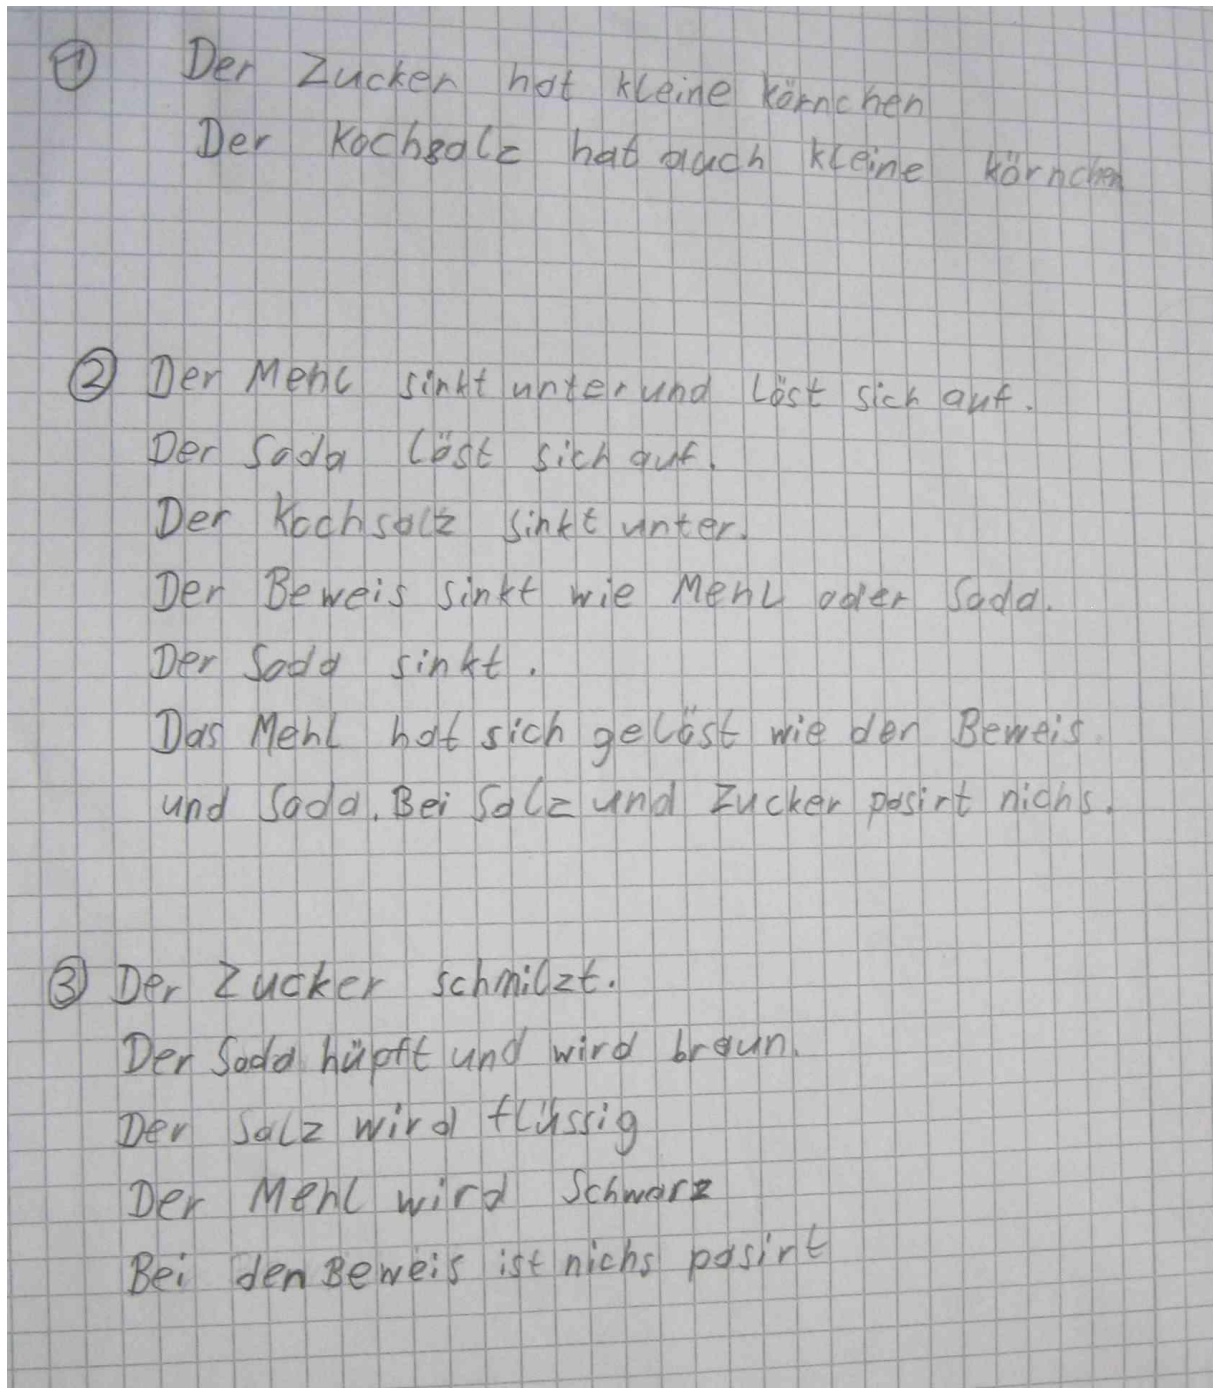 ① Der Zucker hat kleine körnchen
Der Kochsalz hat auch kleine körnchen
② Der Mehl sinkt unter und löst sich auf.
Der Soda löst sich auf.
Der Kochsalz sinkt unter.
Der Beweis sinkt wie Mehl oder Soda.
Der Soda sinkt.
Das Mehl hat sich gelöst wie der Beweis
und Soda. Bei Salz und Zucker pasirt nichs.
③ Der Zucker schmilzt.
Der Soda hüpft und wird braun.
Der Salz wird flüssig
Der Mehl wird Schwarz
Bei den Beweis ist nichs pasirt